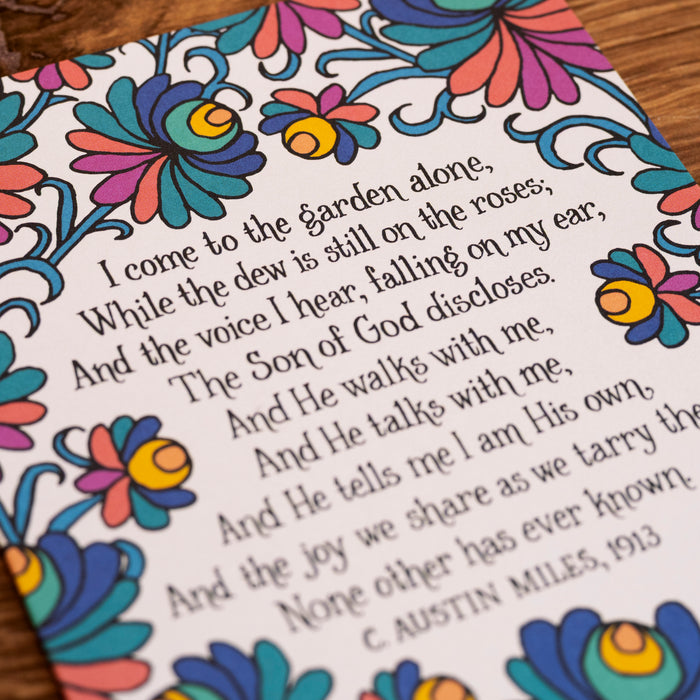 I come to the garden alone,
While the dew is still on the roses;
And the voice I hear, falling on my ear,
The Son of God discloses.
And He walks with me,
And He talks with me,
And He tells me I am His own,
And the joy we share as we tarry the
None other has ever known.
C. AUSTIN MILES, 1913